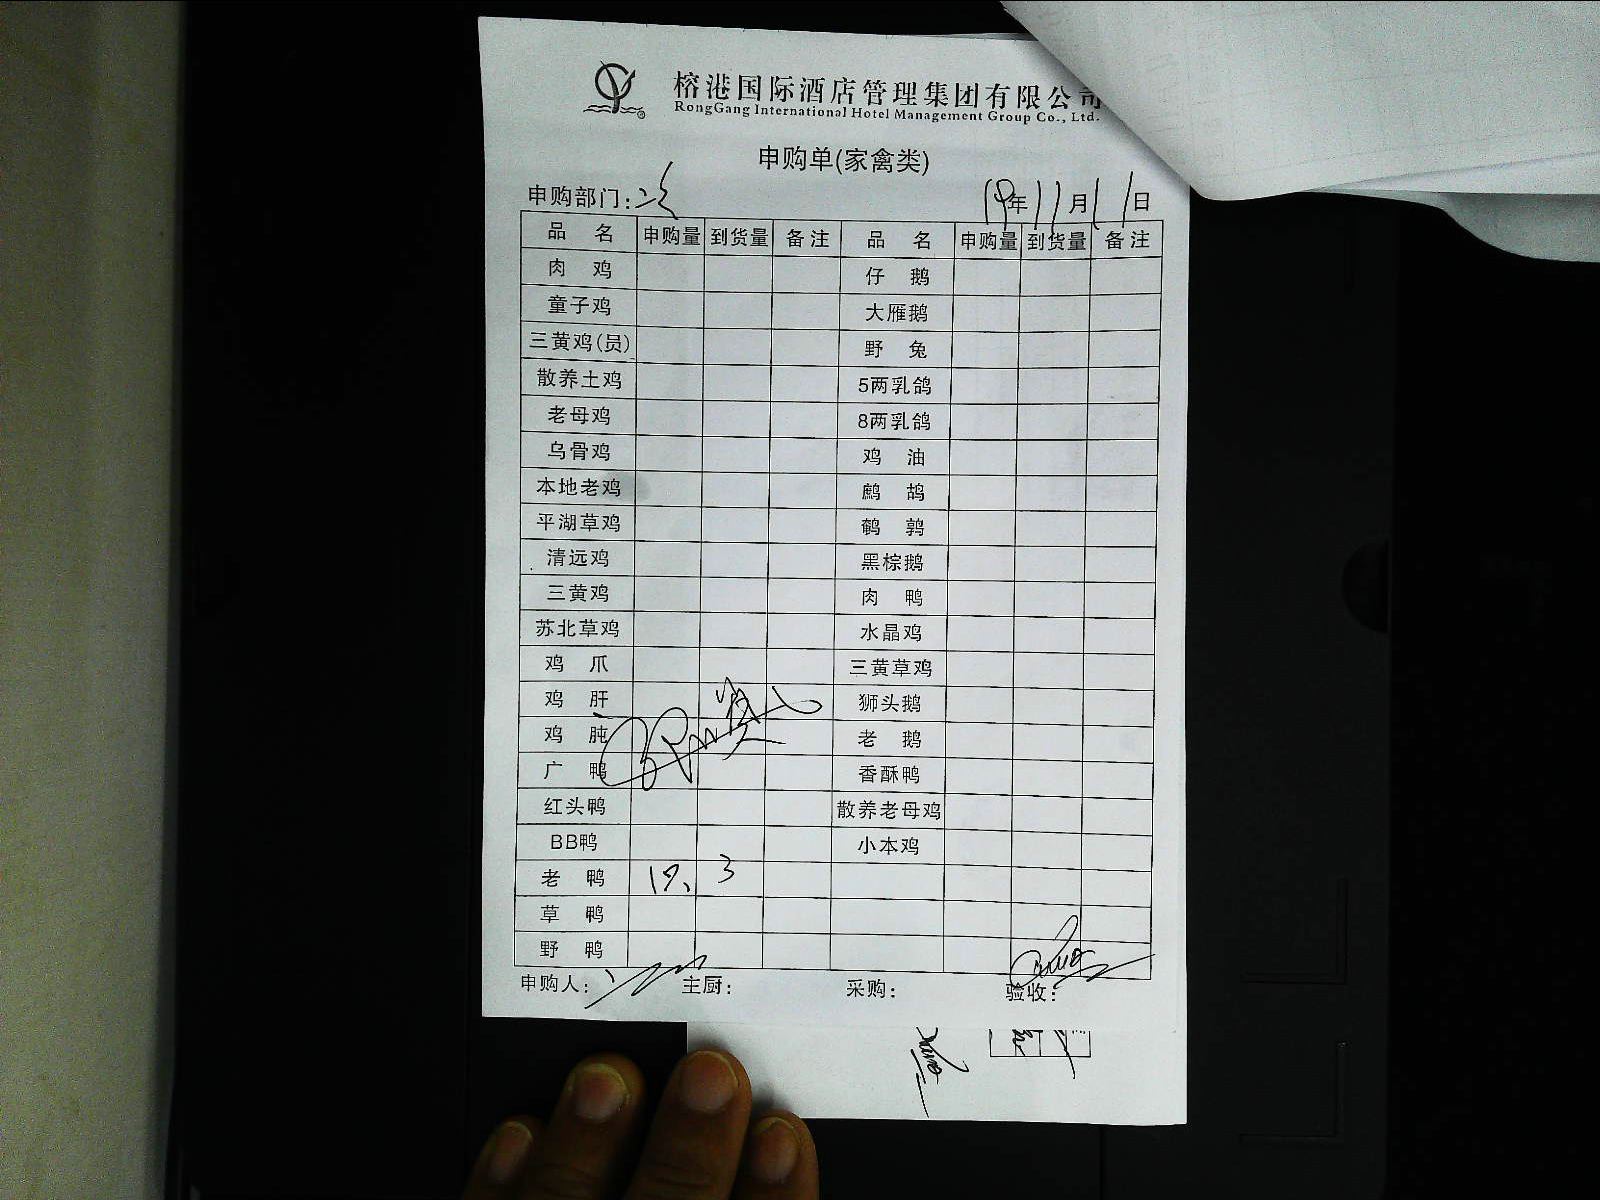 榕港国际酒店管理集团有限公司
RongGang International Hotel Management Group Co., Ltd.
申购单(家禽类)
申购部门: 19年11月11日
品 名 申购量 到货量 备注 品 名 申购量 到货量 备注
肉 鸡 仔 鹅
童子鸡 大雁鹅
三黄鸡(员) 野 兔
散养土鸡 5两乳鸽
老母鸡 8两乳鸽
乌骨鸡 鸡 油
本地老鸡 鹧 鸪
平湖草鸡 鹌 鹑
清远鸡 黑棕鹅
三黄鸡 肉 鸭
苏北草鸡 水晶鸡
鸡 爪 三黄草鸡
鸡 肝 狮头鹅
鸡 肫 老 鹅
广 鸭 香酥鸭
红头鸭 散养老母鸡
BB鸭 小本鸡
老 鸭 3
草 鸭
野 鸭
申购人: 主厨: 采购: 验收: